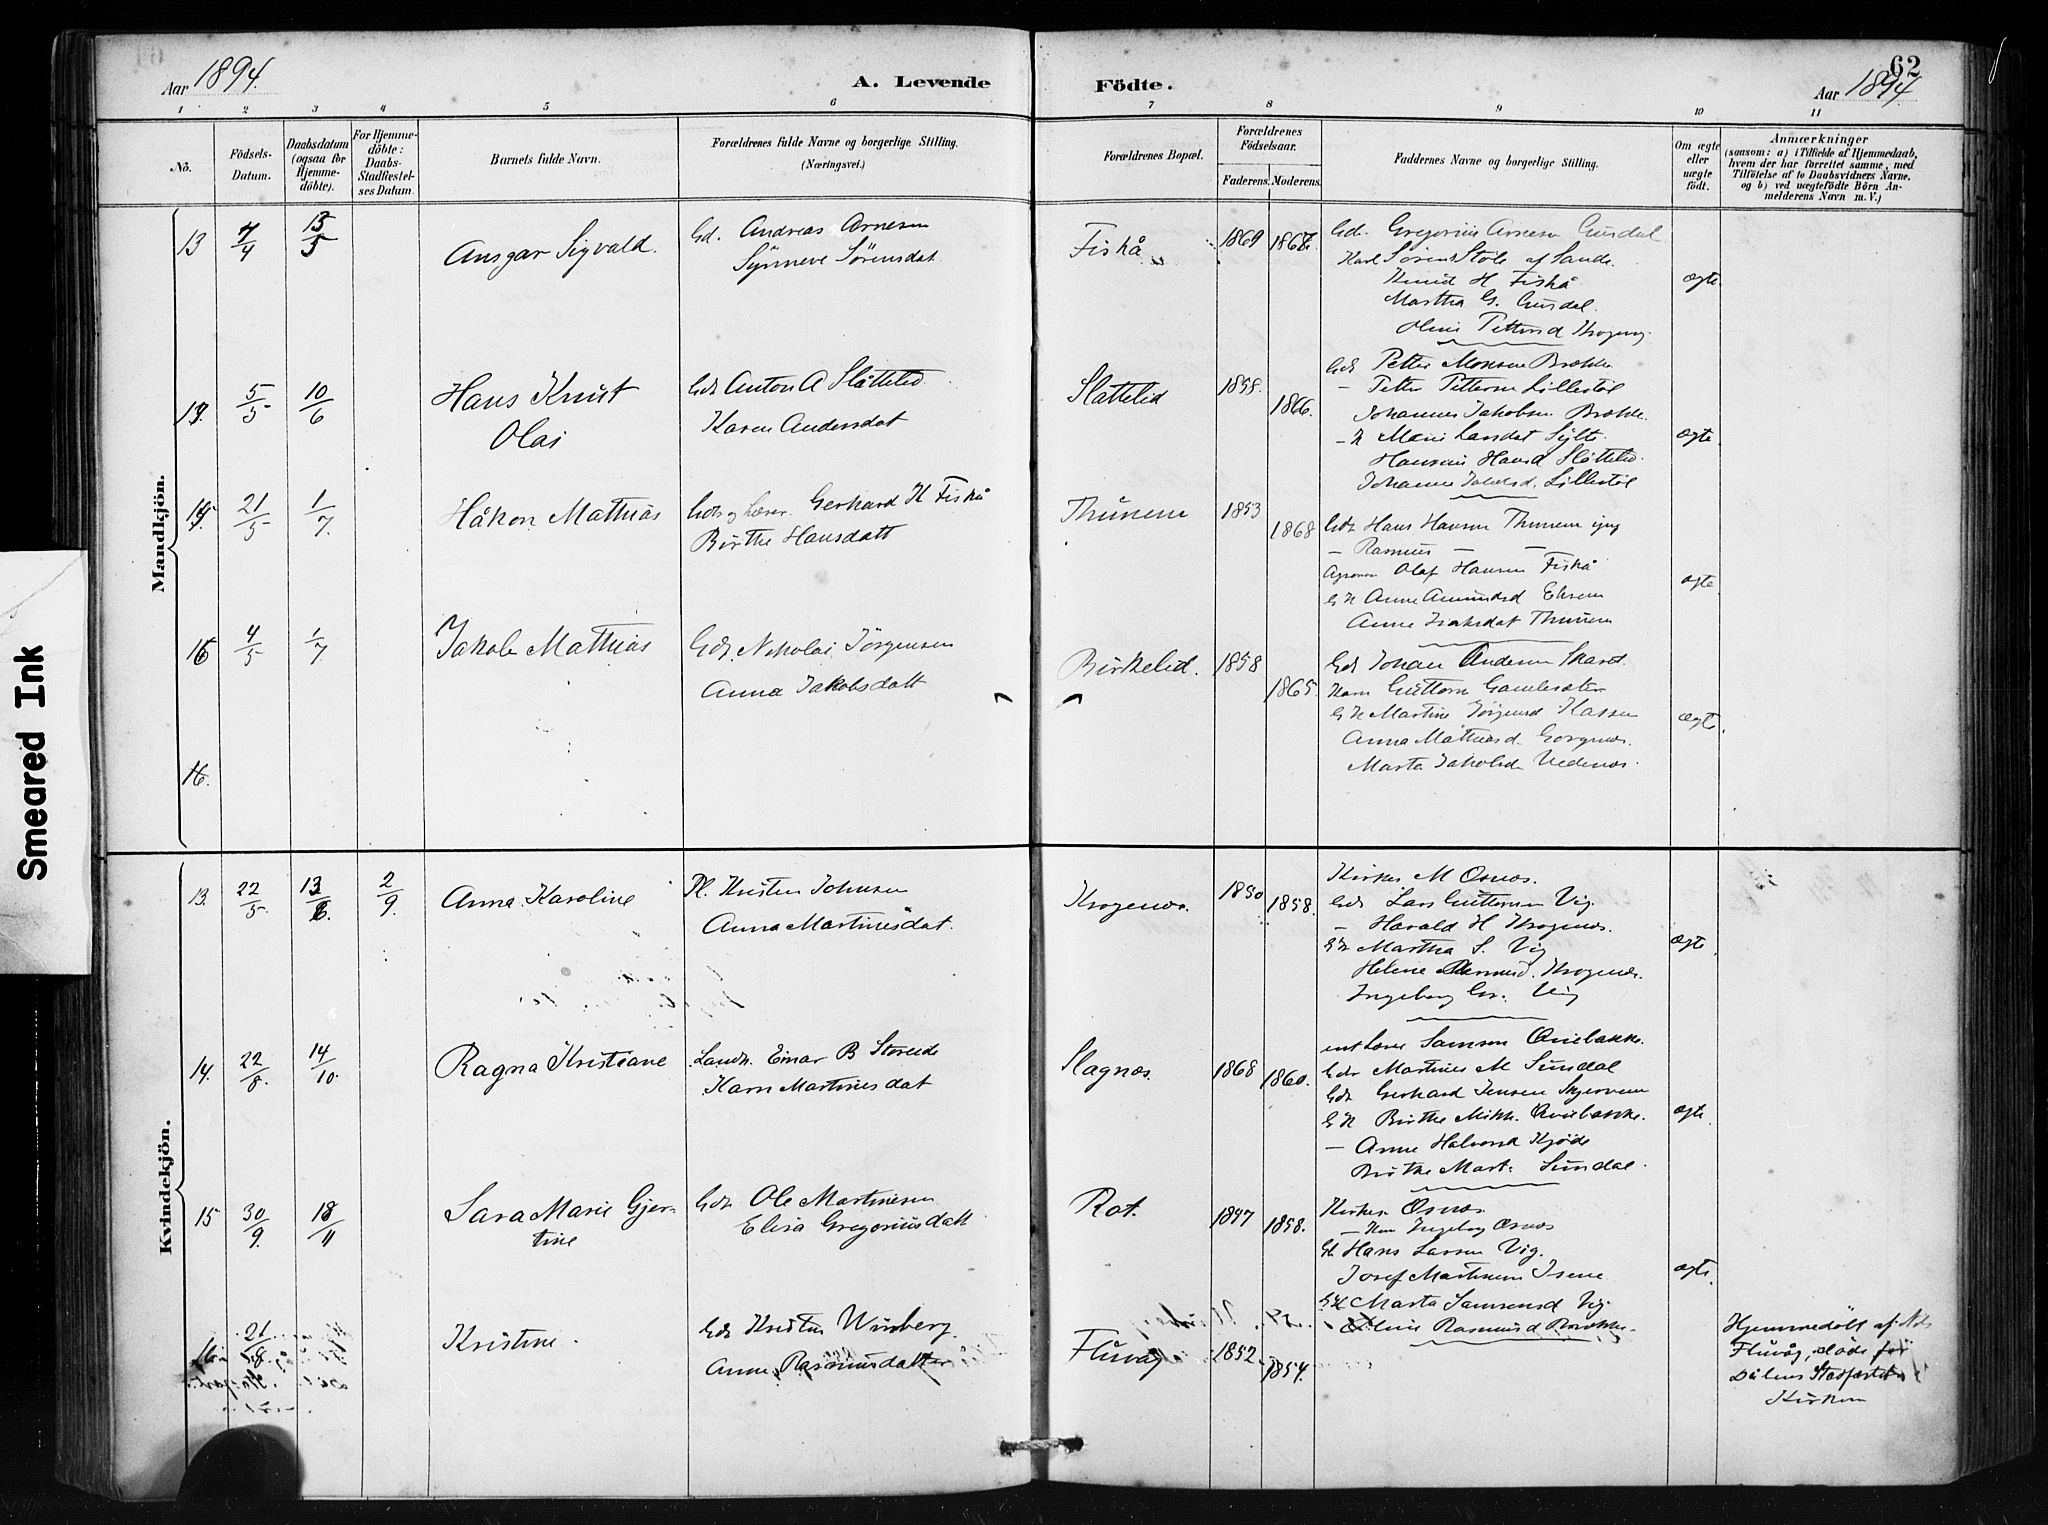 Aar 1894.
A. Levende
Födte.
62
Aar 1894
1 2 3 4 5 6 7 8 9 10 11
No.
Födsels-Datum.
Daabsdatum (ogsaa for Hjemmedöbte).
For Hjemmedöbte: Daabs-Stadfæstelses Datum.
Barnets fulde Navn.
Forældrenes fulde Navne og borgerlige Stilling. (Næringsvei.)
Forældrenes Bopæl.
Forældrenes Födselsaar.
Faderens. Moderens.
Faddernes Navne og borgerlige Stilling.
Om ægte eller uægte födt.
Anmærkninger
(saasom: a) i Tilfælde af Hjemmedaab,
hvem der har forrettet samme, med
Tilföielse af to Daabsvidners Navne,
og b) ved uægtefödte Börn An-
melderens Navn m. V.)
Mandkjön.
13 7/4 13/5 Ansgar Sigvald. Gd. Andreas Arnesen
Synneve Sörensdat.
Fiskå 1869 1867.
Gdr. Gregorius Arnesen Gusdal
Karl Sörens Stöle af Sande.
Knud H Fiskå
Martha G. Gusdal.
Oline Pettersd Krogenæs
ægte
5/5 10/6 Hans Knut
Olai
Gdr Anton A Slåttelid
Karen Andersdat
Slåttelid 1858. 1866.
Gdr Petter Monsen Brække
— Petter Pettersen Lillestöl
Johannes Jakobsen Brække.
Marie Larsdat Sylte.
Hansine Hansd Slåttelid.
Johanne Jakobsd. Lillestöl
ægte
21/5 1/7. Håkon Mathias Gdr og Lærer. Gerhard H Fiskå
Birthe Hansdatt
Thunem 1853 1868
Gdr Hans Hansen Thunem yng
— Rasmus — —
Agronom Olaf Hansen Fiskå
G K Anne Amundsd Ekrem
Anne Isaksdat Thunem
ægte
4/5 1/7 Jakob Mathias Gdr. Nikolai Jörgensen
Anna Jakobsdatt
Birkelid. 1858 1865.
Gdr Johan Andersen Skare.
Karn Guttorm Gamlesæter
G K Martine Jörgensd Hassen
Anna Mathiasd.
Marta Jakobsd. Vedenæs.
ægte
16.
Kvindekjön.
13. 22/5. 13/6. 2/9. Anna Karoline Pl. Kristen Johnsen
Anna Martinusdat.
Krogenæs. 1850 1858.
Kirkes M Osnæs.
Gdr Lars Guttormsen Vig.
— Harald H Krogenæs.
G K Martha S. Vig
Helene Rasmusd. Krogenæs.
Ingeborg Gr. Vig
ægte
14. 22/8. 14/10. Ragna Kristiane Landh. Einar B Storeide
Karn Martinusdat
Slagnæs. 1868 1860.
Lærer Samson Qviebakke.
Gdr Martinus M Sundal
Gdr Gerhard Jensen Skjervem
G K Birthe Mikk. Qviebakke.
— Anne Halvorsd Kjöde
Birthe Mart. Sundal.
ægte
15 30/9. 18/11 Sara Marie Gjer-
tine
Gdr Ole Martinusen
Elisa Gregoriusdatt
Rot. 1847 1858.
Kirkes Osnæs.
— Kone Ingeborg Osnæs
Gd. Hans Larsen Vig.
Josef Martinusen Isene
GK Marta Samsonsd Vig.
Oline Rasmusd Brække.
ægte.
16. 21/8. Kristine. Gdr Kristen Winberg.
Anne Rasmusdatter
Fluvåg 1852 1854.
Hjemmedöbt af Nils
Fluvåg, död för
Dåbens Stadfæstelse i
Kirken
Smeared Ink